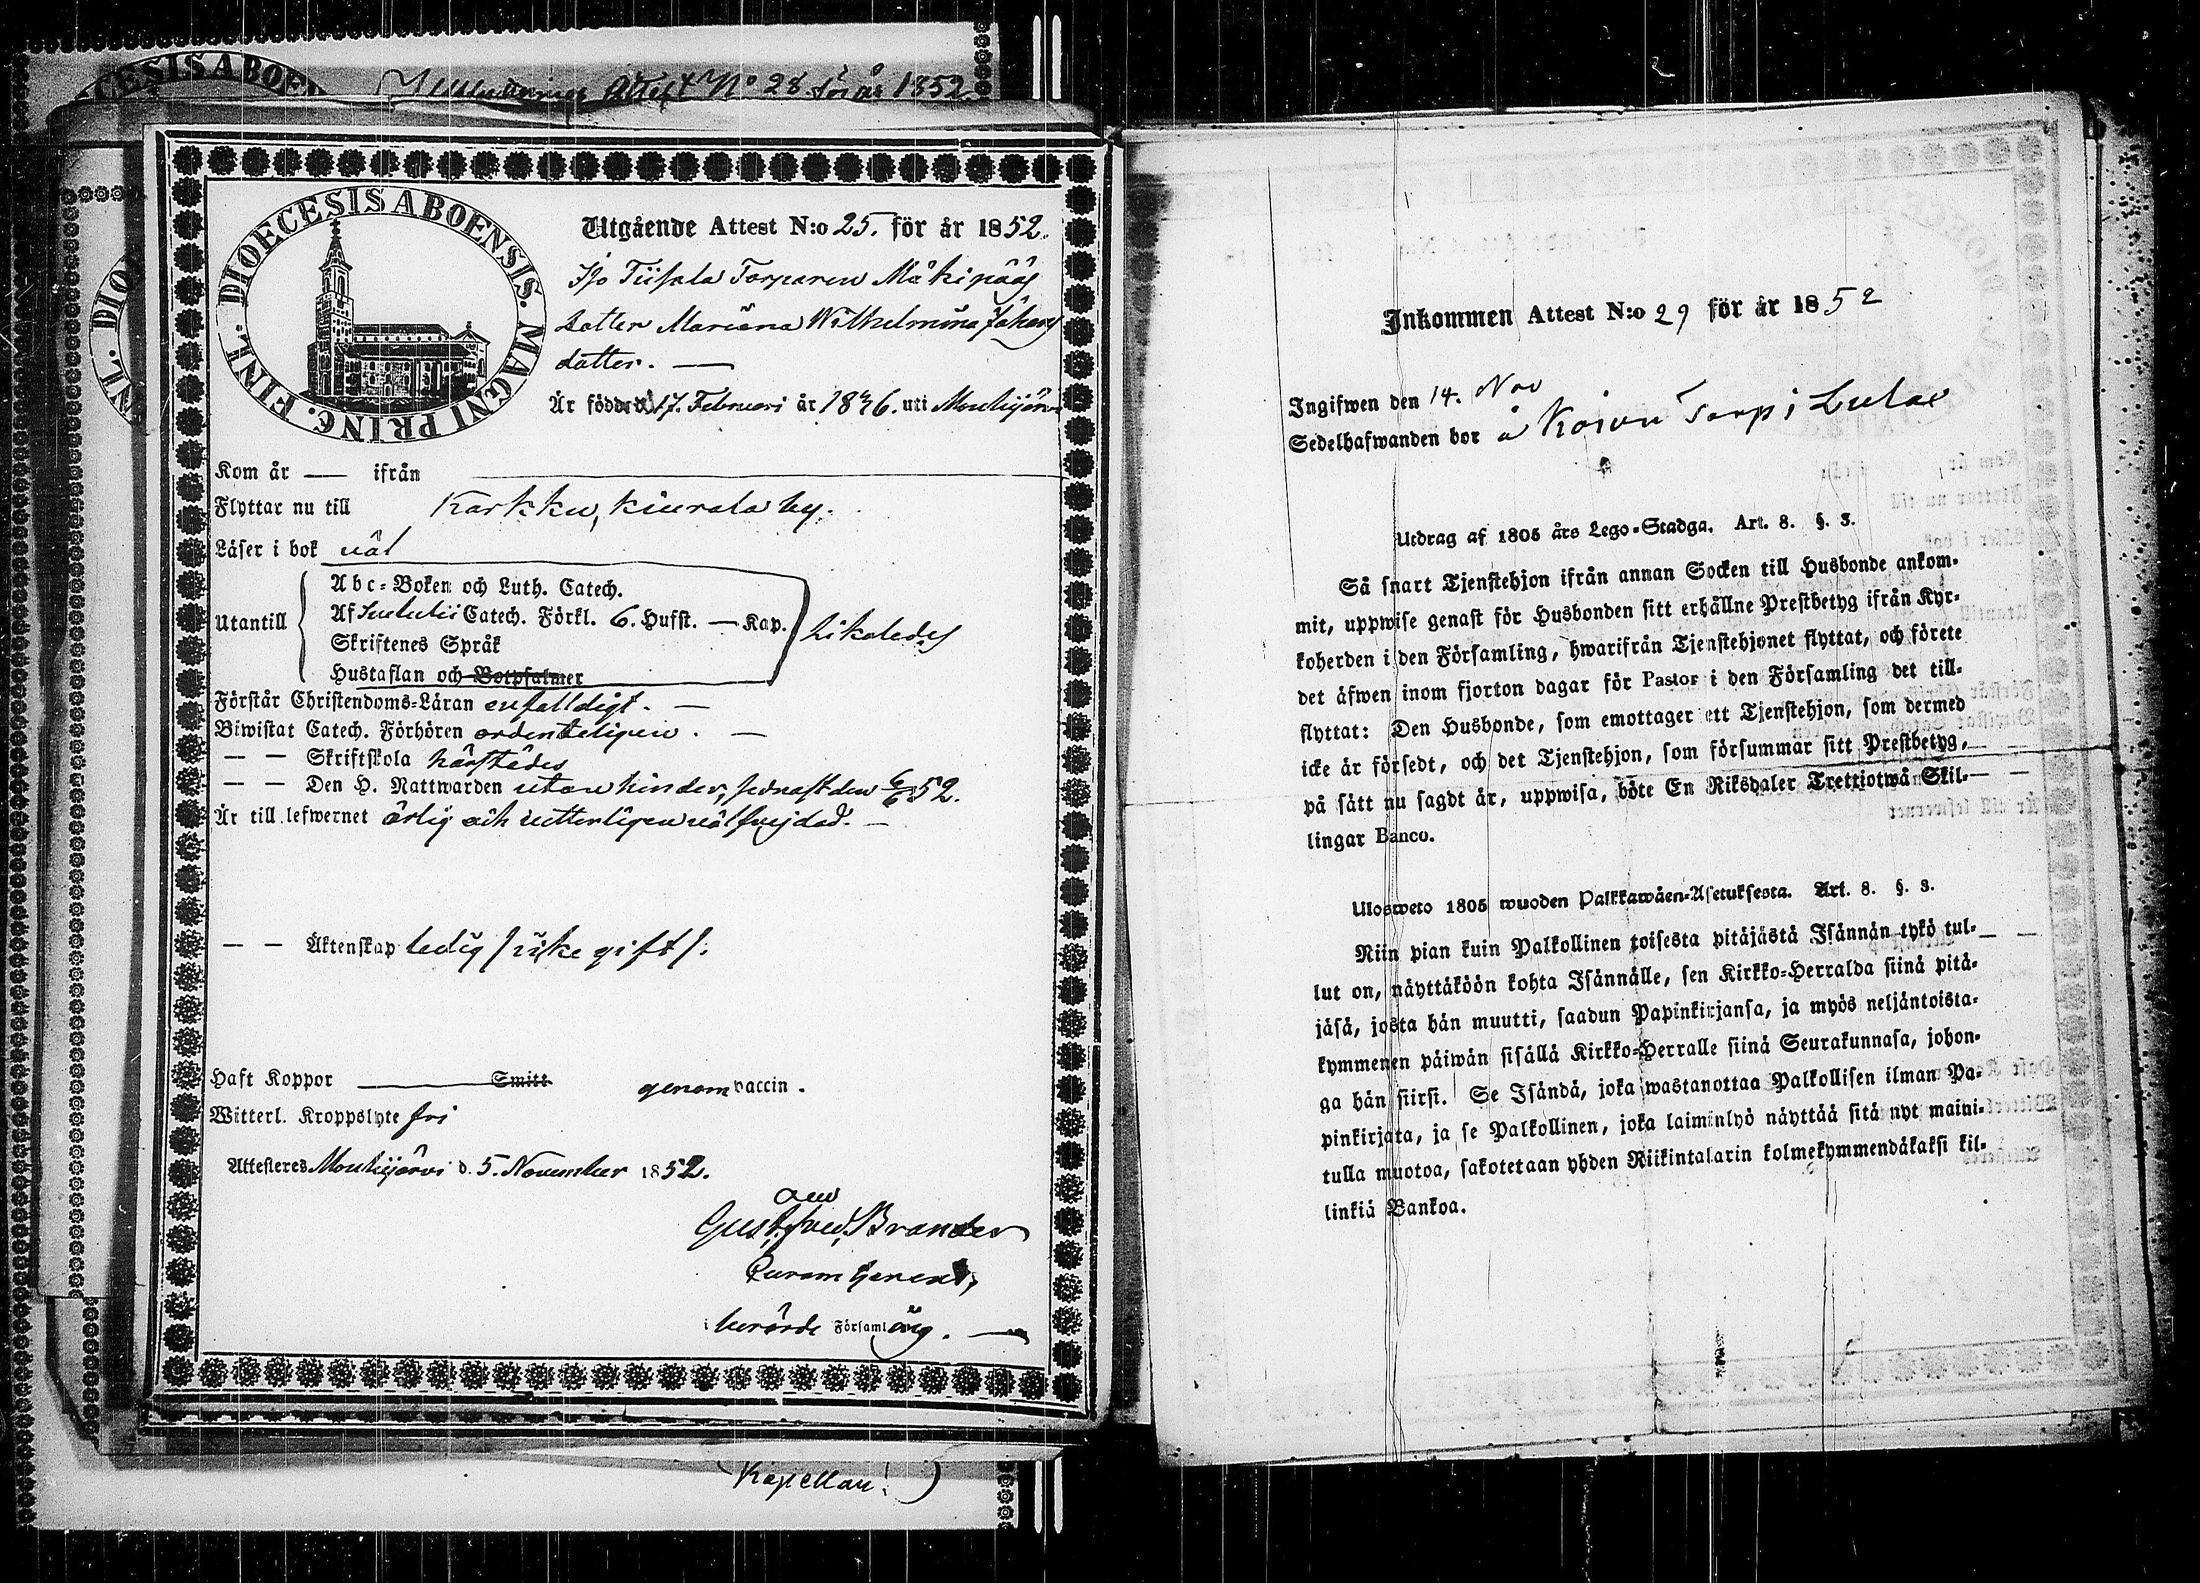 Attest No 28 för år 1852.
DIOECESIS ABOENSIS. MAGNI PRINC. FINL.
Utgående Attest N:o 25. för år 1852.
Torparen Mäkipääs
dotter Mariana Wilhelmina Johans
dotter. —
Är född d 17. Februari år 1826. uti Mouhijärvi
Kom år — ifrån
Flyttar nu till Karkku, Kiurala by.
Läser i bok väl
Utantill
Abc-Boken och Luth. Catech.
Af Svebelii Catech. Förkl. 6. Hufst. — Kap.
Skriftenes Språk
Hustaflan och Botpsalmer
likaledes
Förstår Christendoms-Läran enfalldigt. —
Biwistat Catech. Förhören ordenteligen. —
— — Skriftskola härstädes
— — Den H. Nattwarden utan hinder, sednast den 6/6 52.
Är till lefwernet ärlig och vetterligen välfrejdad. —
— — Äktenskap ledig /icke gift/.
Haft Koppor — Smitt genom vaccin.
Witterl. Kroppslyte fri
Attesteres Mouhijärvi d. 5. November 1852.
Gust. Fred. Brander
i berörde Församling. —
Kapellan.
Inkommen Attest N:o 29 för år 1852
Ingifwen den 14. Nov
Sedelhafwanden bor å Koivu Torp i
Utdrag af 1805 års Lego-Stadga. Art. 8. §. 3.
Så snart Tjenstehjon ifrån annan Socken till Husbonde ankom-
mit, uppwise genast för Husbonden sitt erhållne Prestbetyg ifrån Kyr-
koherden i den Församling, hwarifrån Tjenstehjonet flyttat, och förete
det äfwen inom fjorton dagar för Pastor i den Församling det till-
flyttat: Den Husbonde, som emottager ett Tjenstehjon, som dermed
icke är försedt, och det Tjenstehjon, som försummar sitt Prestbetyg,
på sätt nu sagdt är, uppwisa, böte En Riksdaler Trettiotwå Skil-
lingar Banco.
Ulosweto 1805 wuoden Palkkawäen-Asetuksesta. Art. 8. §. 3.
Niin pian kuin Palkollinen toisesta pitäjästä Isännän tykö tul-
lut on, näyttäköön kohta Isännälle, sen Kirkko-Herralda siinä pitä-
jäsä, josta hän muutti, saadun Papinkirjansa, ja myös neljäntoista-
kymmenen päiwän sisällä Kirkko-Herralle siinä Seurakunnasa, johon-
ga hän siirsi. Se Isändä, joka wastanottaa Palkollisen ilman Pa-
pinkirjata, ja se Palkollinen, joka laiminlyö näyttää sitä nyt maini-
tulla muotoa, sakotetaan yhden Riikintalarin kolmekymmendäkaksi kil-
linkiä Bankoa.